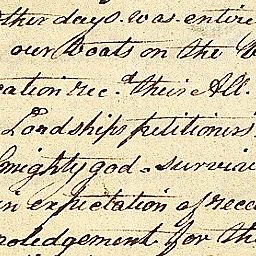 other days. was entire
our boats on the W
cation rec.d their All.
Lordships petitioners
Almighty god - survive
in expectation of rece
nowledgement for the